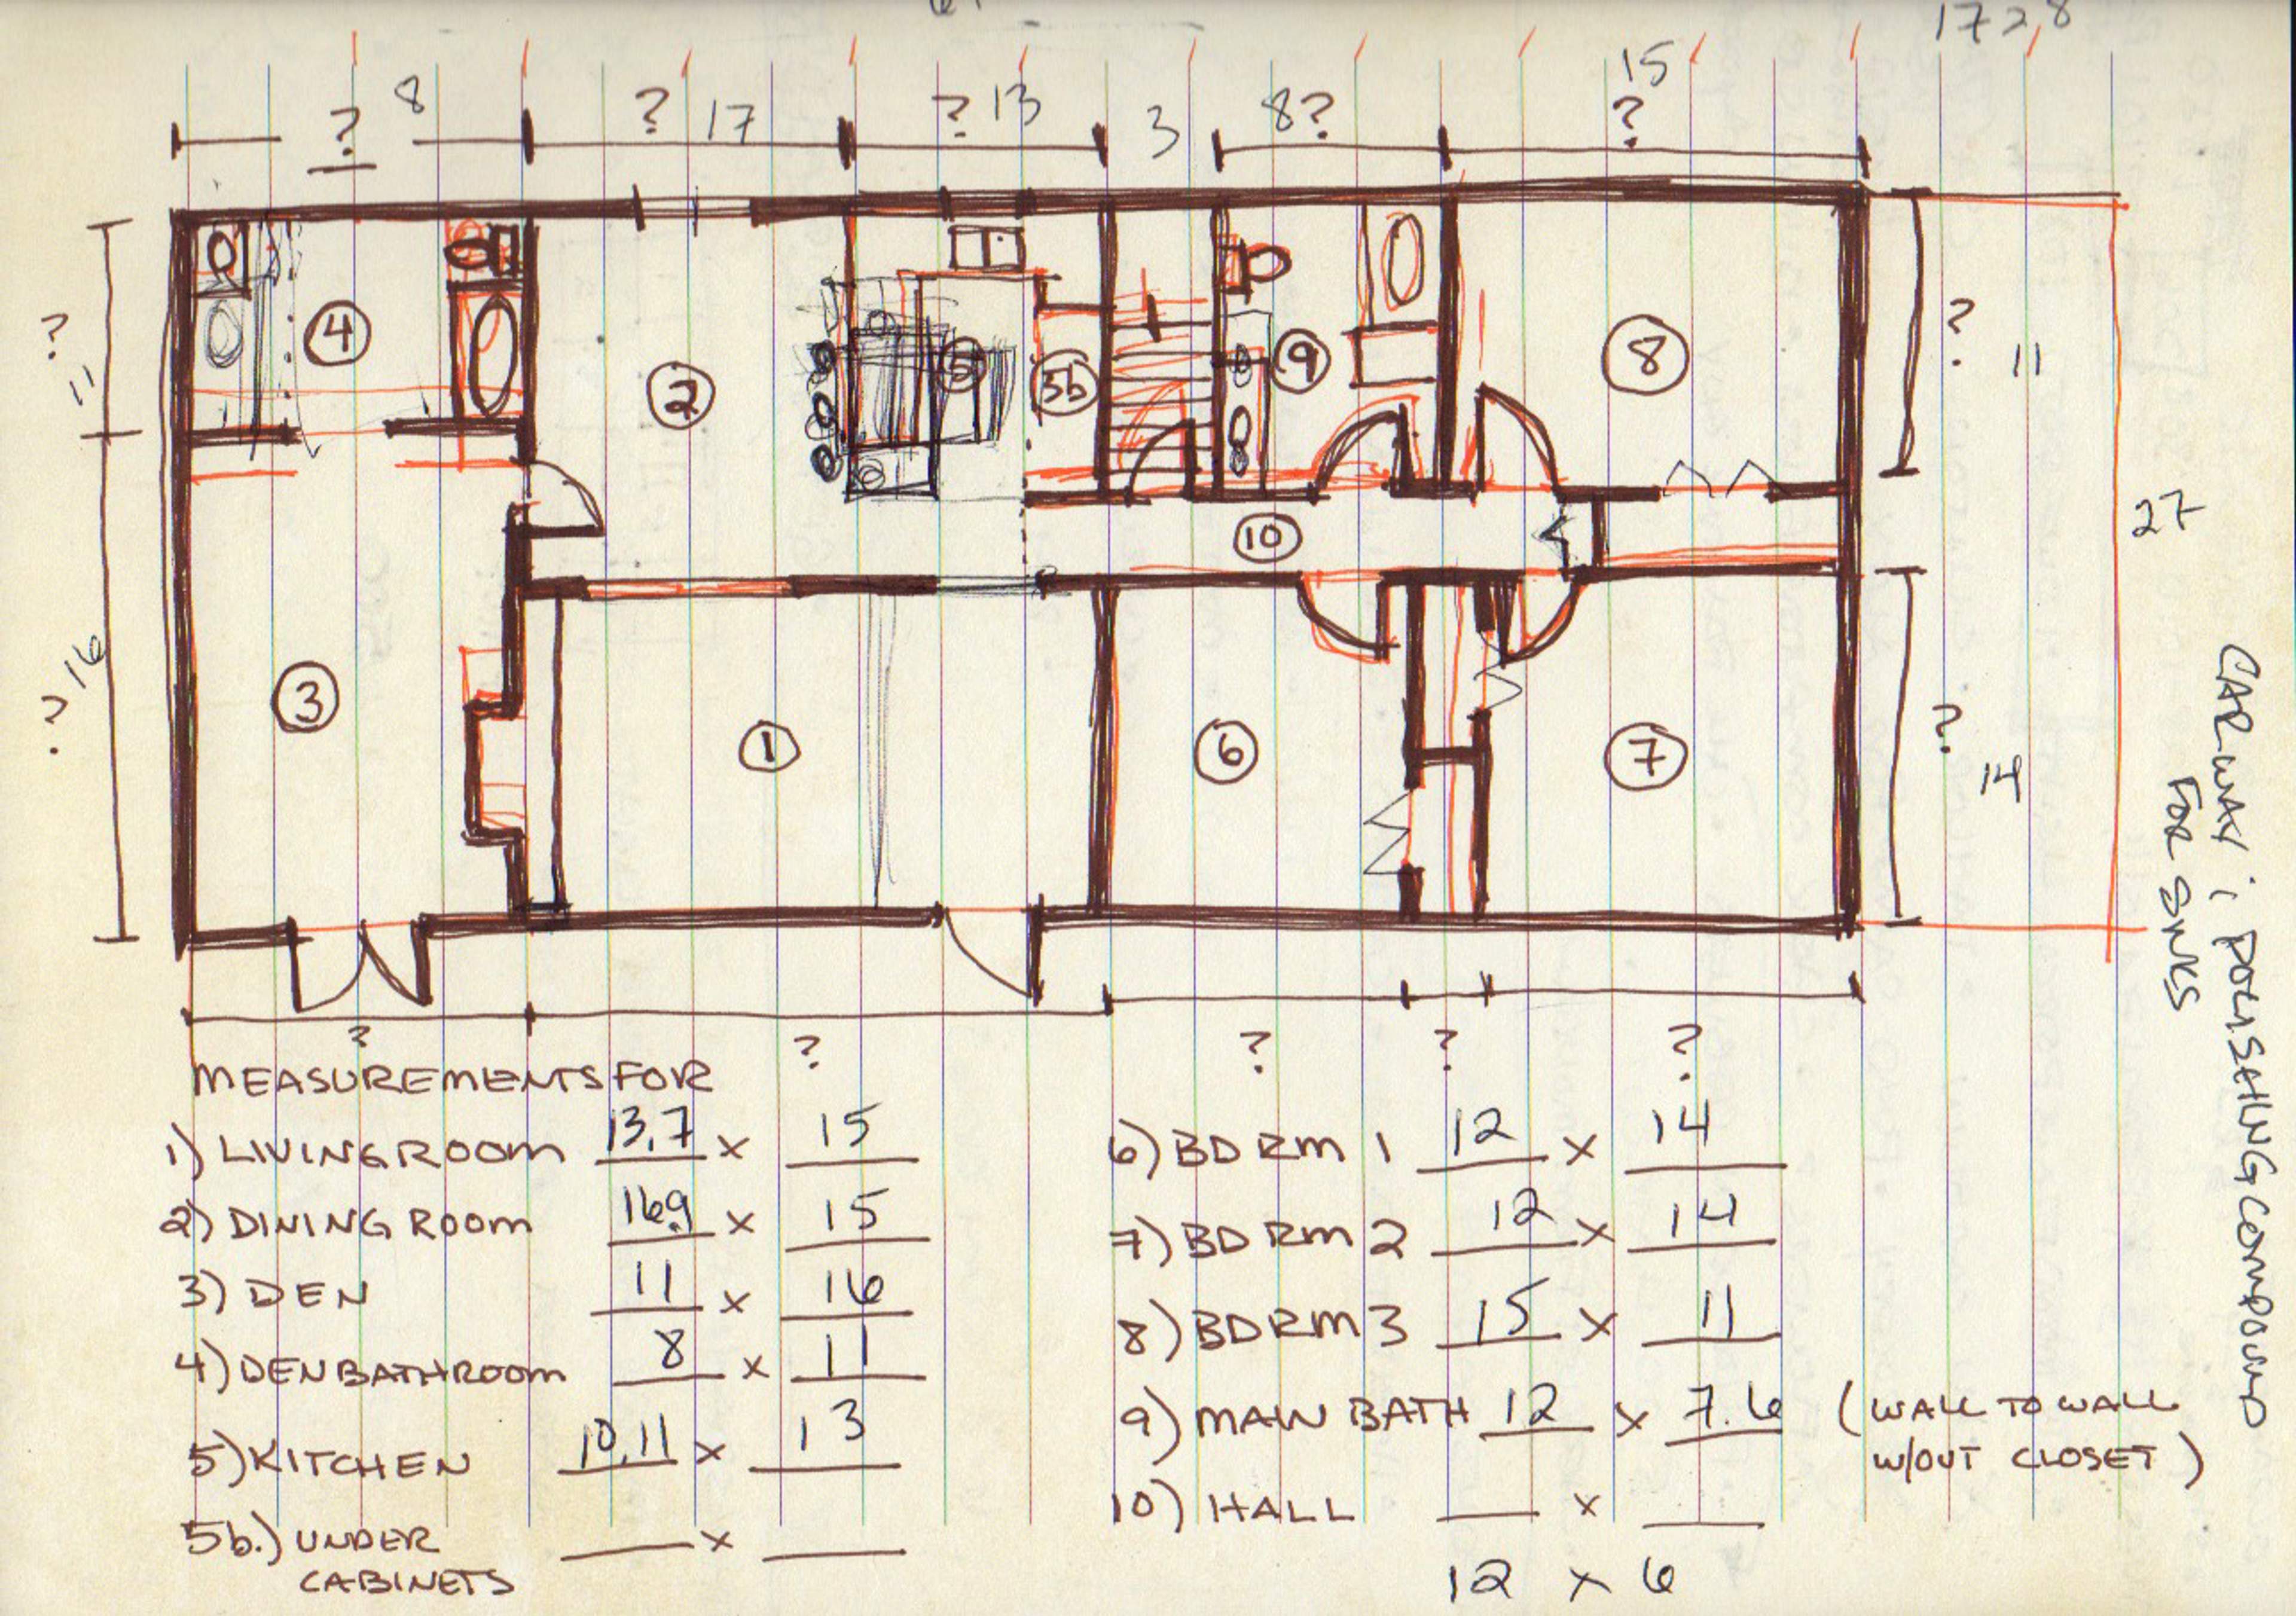 1728
? 8
? 17
? 13
3
8?
15
?
4
2
5
5b
9
8
? 11
? 11
10
27
3
1
6
7
? 16
? 14
CARWAY ; POLISHING COMPOUND
FOR SINKS
?
?
?
?
?
MEASUREMENTS FOR
1) LIVING ROOM 13.7 x 15
2) DINING ROOM 16.9 x 15
3) DEN 11 x 16
4) DEN BATHROOM 8 x 11
5) KITCHEN 10.11 x 13
5b.) UNDER ___ x ___
CABINETS
6) BDRM 1 12 x 14
7) BDRM 2 12 x 14
8) BDRM 3 15 x 11
9) MAIN BATH 12 x 7.6 (WALL TO WALL
W/OUT CLOSET)
10) HALL ___ x ___
12 x 6